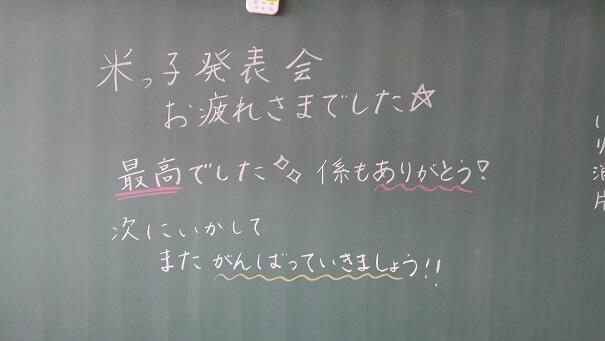 米っ子発表会
お疲れさまでした☆
最高でした 係もありがとう!
次にいかして
また がんばっていきましょう!!